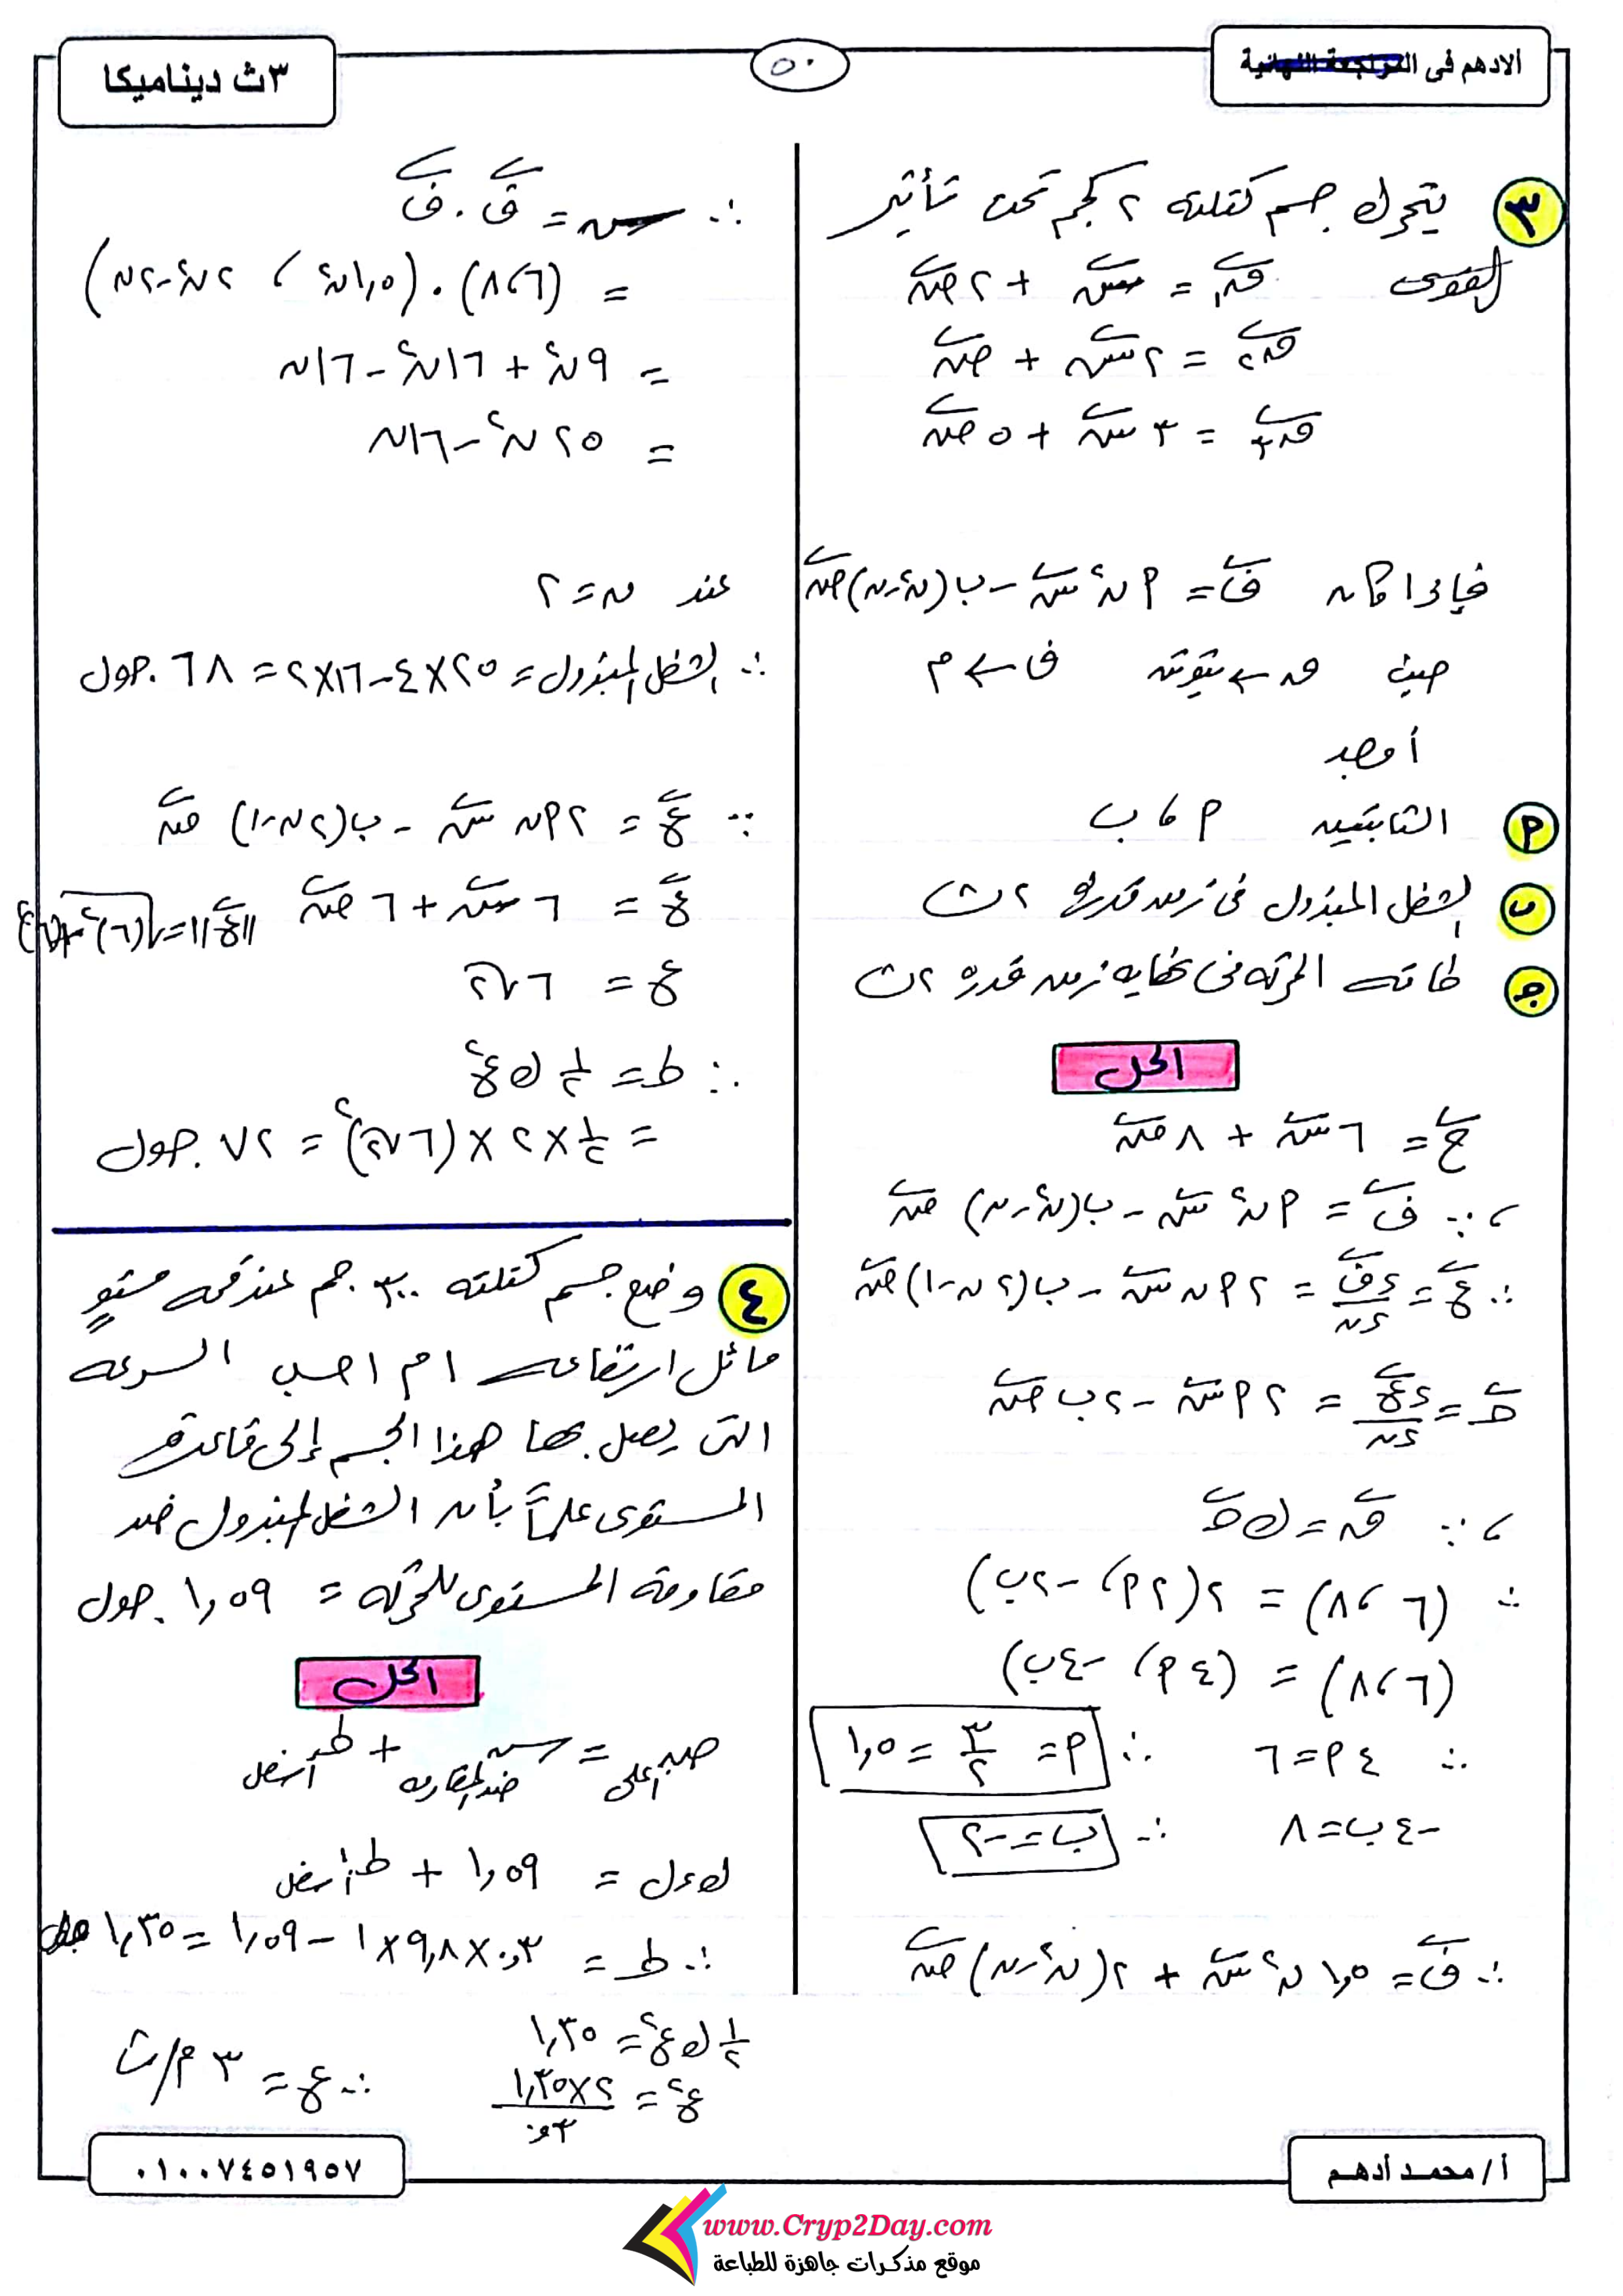 الادهم فى المراجعة النهائية
٥٠
٣ث ديناميكا
٣ يتحرك جسم كتلته ٢ كجم تحت تأثير
القوى ق١ = س + ٢ص
ق٢ = ٢س + ص
ق٣ = ٣س + ٥ص
فإذا كان ف = م ن٢ س - ب(ن٢-ن)ص
حيث ق بـ نيوتن ف بـ م
أوجد
م الثابتين م ، ب
ب الشغل المبذول فى زمن قدره ٢ث
ج طاقة الحركة فى نهاية زمن قدره ٢ث
الحل
ح = ٦س + ٨ص
، ∵ ف = م ن٢ س - ب(ن٢-ن) ص
∴ ع = ءف/ءن = ٢م ن س - ب(٢ن-١)ص
ح = ءع/ءن = ٢م س - ٢ب ص
، ∵ ق = ك ح
∴ (٦، ٨) = ٢(٢م، -٢ب)
(٦، ٨) = (٤م، -٤ب)
∴ ٤م = ٦ ∴ م = ٣/٢ = ١,٥
-٤ب = ٨ ∴ ب = -٢
∴ ف = ١,٥ ن٢ س + ٢(ن٢-ن)ص
∴ ش = ق . ف
= (٦، ٨) . (١,٥ن٢ ، ٢ن٢-٢ن)
= ٩ن٢ + ١٦ن٢ - ١٦ن
= ٢٥ن٢ - ١٦ن
عند ن = ٢
∴ الشغل المبذول = ٢٥×٤-١٦×٢ = ٦٨ جول
∵ ع = ٢م ن س - ب(٢ن-١) ص
ع = ٦س + ٦ص ||ع|| = √(٦)٢+(٦)٢
ع = ٦√٢
∴ ط = ١/٢ ك ع٢
= ١/٢ × ٢ × (٦√٢)٢ = ٧٢ جول
٤ وضع جسم كتلته ٣٠٠ جم عند قمة مستوٍ
مائل ارتفاعه ١ م احسب السرعة
التى يصل بها هذا الجسم إلى قاعدة
المستوى علماً بأن الشغل المبذول ضد
مقاومة المستوى للحركة = ١,٥٩ جول
الحل
ض أعلى = ش ضد المقاومة + ط أسفل
ك ء ل = ١,٥٩ + ط أسفل
∴ ط = ٠,٣×٩,٨×١ - ١,٥٩ = ١,٣٥ جول
١/٢ ك ع٢ = ١,٣٥
ع٢ = ١,٣٥×٢/٠,٣ ∴ ع = ٣ م/ث
أ / محمد أدهم
٠١٠٠٧٤٥١٩٥٧
www.Cryp2Day.com
موقع مذكرات جاهزة للطباعة